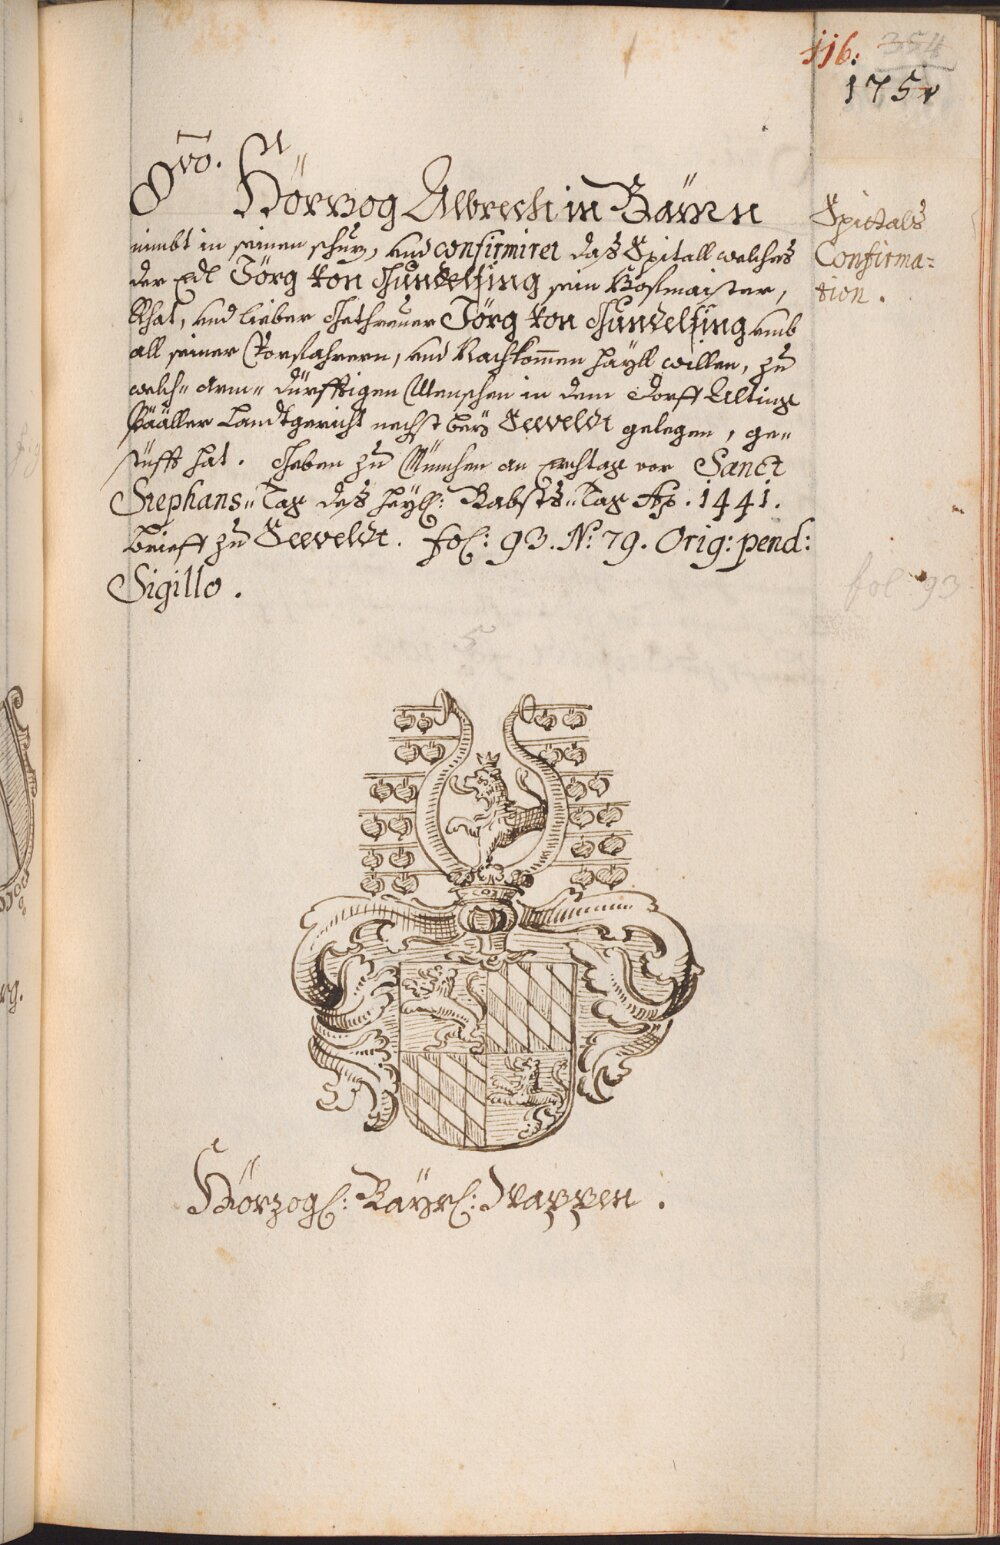 116: 354
175v
Spittals
Confirma=
tion.
8vo. Hörzog Albrecht in Bäyrn
nimbt in seinen schuz, und confirmiret das Spitall welches
der Edl Jörg von Gundelfing sein Hofmaister,
Rhat, und lieber Gethreuer Jörg von Gundelfing umb
all seiner Vorfahrern, und Nachkomen hayll willen, zu
welch" arm" dürfftigen Menschen in dem Dorff Ulting
Landtgericht nechst beÿ Seeveldt gelegen, ge"
stüfft hat. Geben zu München an Erchtag vor Sanct
Stephans" Tag des heyl: Babsts" Tag Ao. 1441.
Brieff zu Seeveldt. fol: 93. N: 79. Orig: pend:
Sigillo.
fol 93
Hörzogl: Bäyrl: Wappen.